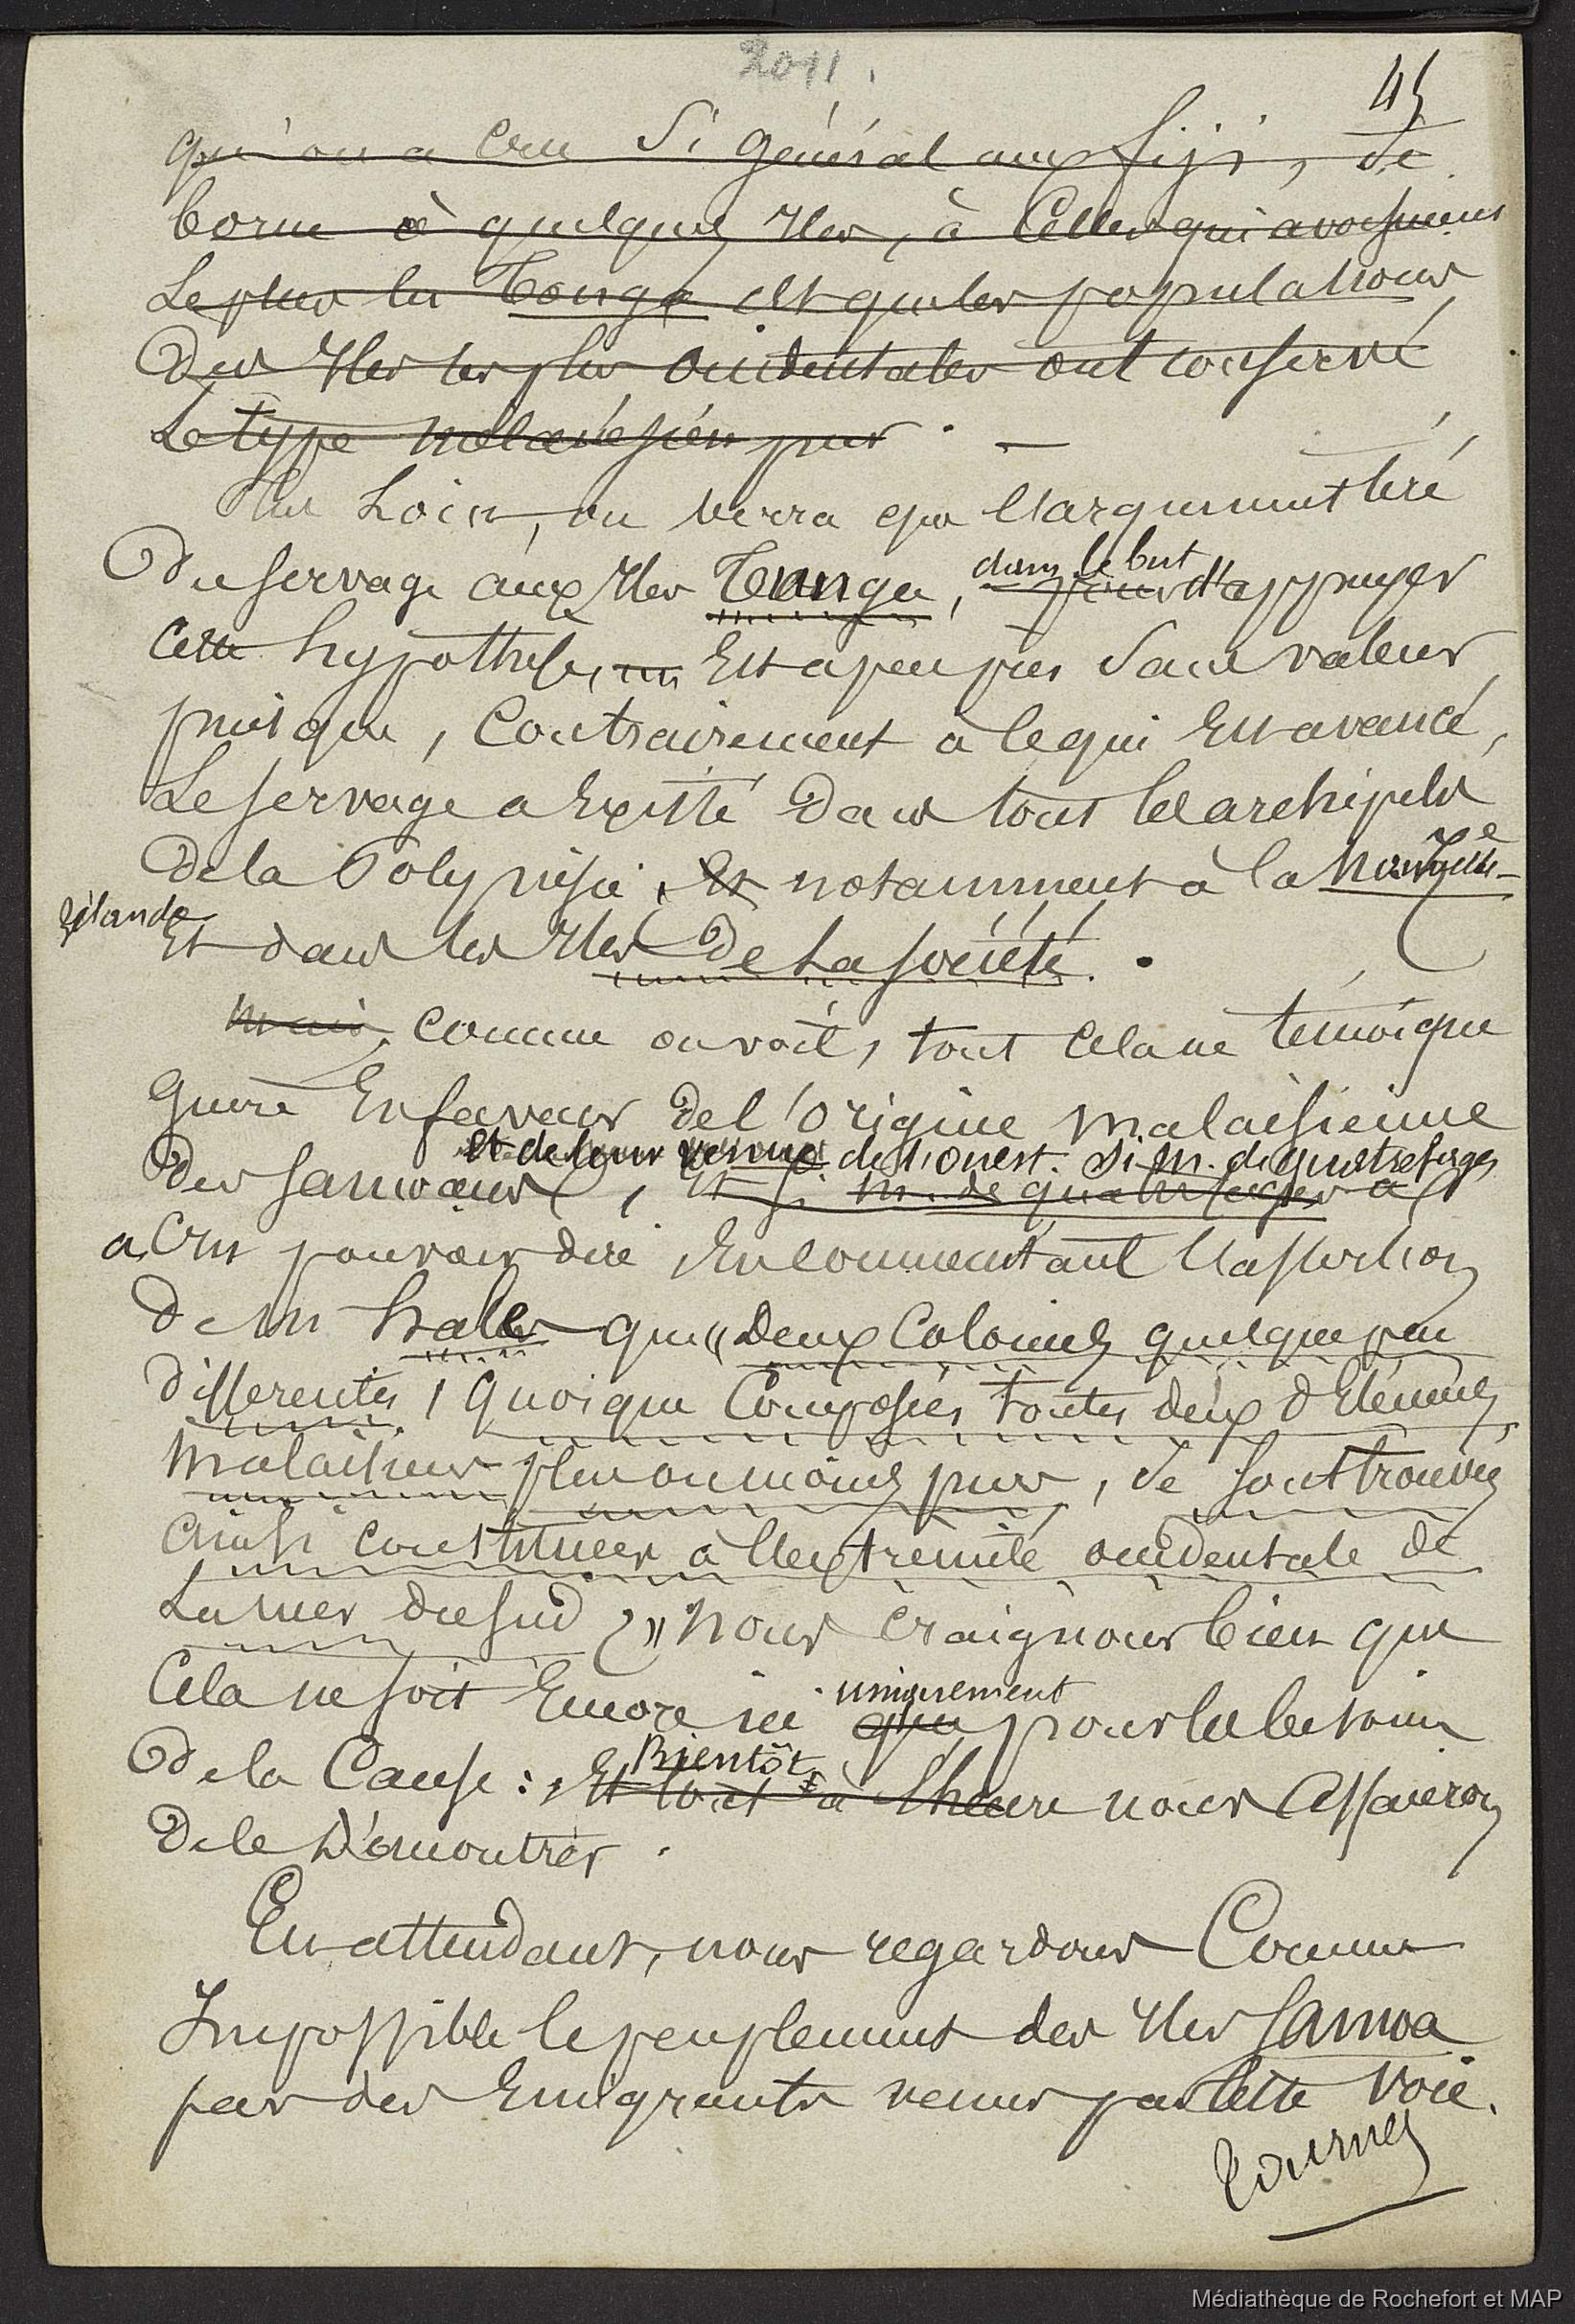 2011.
45
qu'on a cru si général aux fijis, se
borne à quelques Iles, à Celles qui avoisinent
Le plus les Tonga et que les populations
Des Iles les plus Occidentales ont conservé
Le type mélanésien pur. —
Plus Loin, on verra que l'argument tiré
Du servage aux Iles Tunga, pour d'appuyer
dans le but
Cette hypothèse, Est a peu près Sans valeur,
puisque, Contrairement à ce qui Est avancé,
Le servage a Existé Dans tous les archipels
De la Polynésie, Et notamment à la nouvelle-
Zélande
Et dans les Iles De La société.
Mais, Comme on voit, tout Cela ne témoigne
Guère En faveur De l'Origine malaisienne
et de leur venue de l'ouest. Si M. de quatrefages
Des Samoans, Et Si M. de quatrefages a
a, Cru pouvoir dire En Commentant l'assertion
De M. hale que "Deux Colonies quelque peu
Differentes, Quoique Composées toutes deux d'Eléments
Malaisiens plus ou moins purs, se sont trouvées
Ainsi constituées à l'extrémité occidentale de
La mer du sud," Nous Craignons bien que
Cela ne soit Encore ici que pour les besoins
uniquement
De la Cause: Et tout à l'heure nous Essaierons
Bientôt
De le Démontrer.
En attendant, nous regardons Comme
Impossible le peuplement des Iles Samoa
par des Emigrants venus par cette Voie.
Tournez
Médiathèque de Rochefort et MAP